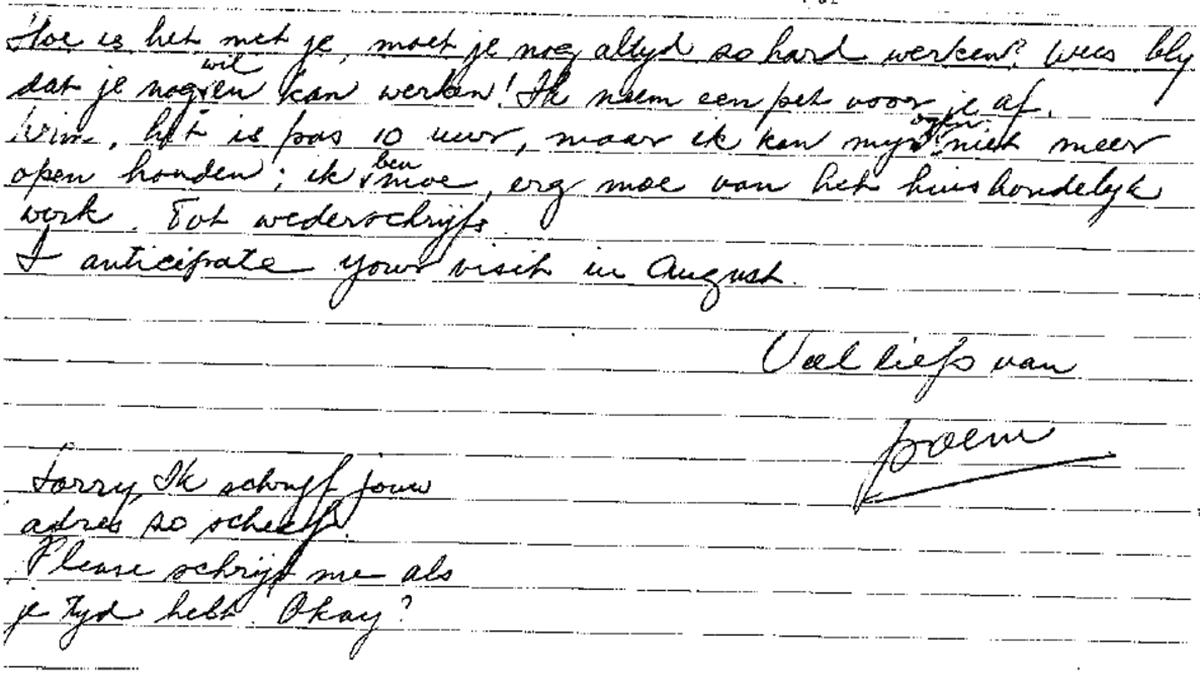 Hoe is het met je, moet je nog altyd so hard werken? Wees bly
dat je nog wil en kan werken! Ik neem een pet voor je af.
Wim, het is pas 10 uur, maar ik kan myn ogen niet meer
open houden; ik ben moe, erg moe van het huishoudelyk
werk. Tot wederschrijfs.
I anticipate your visit in August.
Veel liefs van
Sorry, Ik schryf jouw
adres so scheef.
Please schrijf me als
je tyd hebt. Okay?